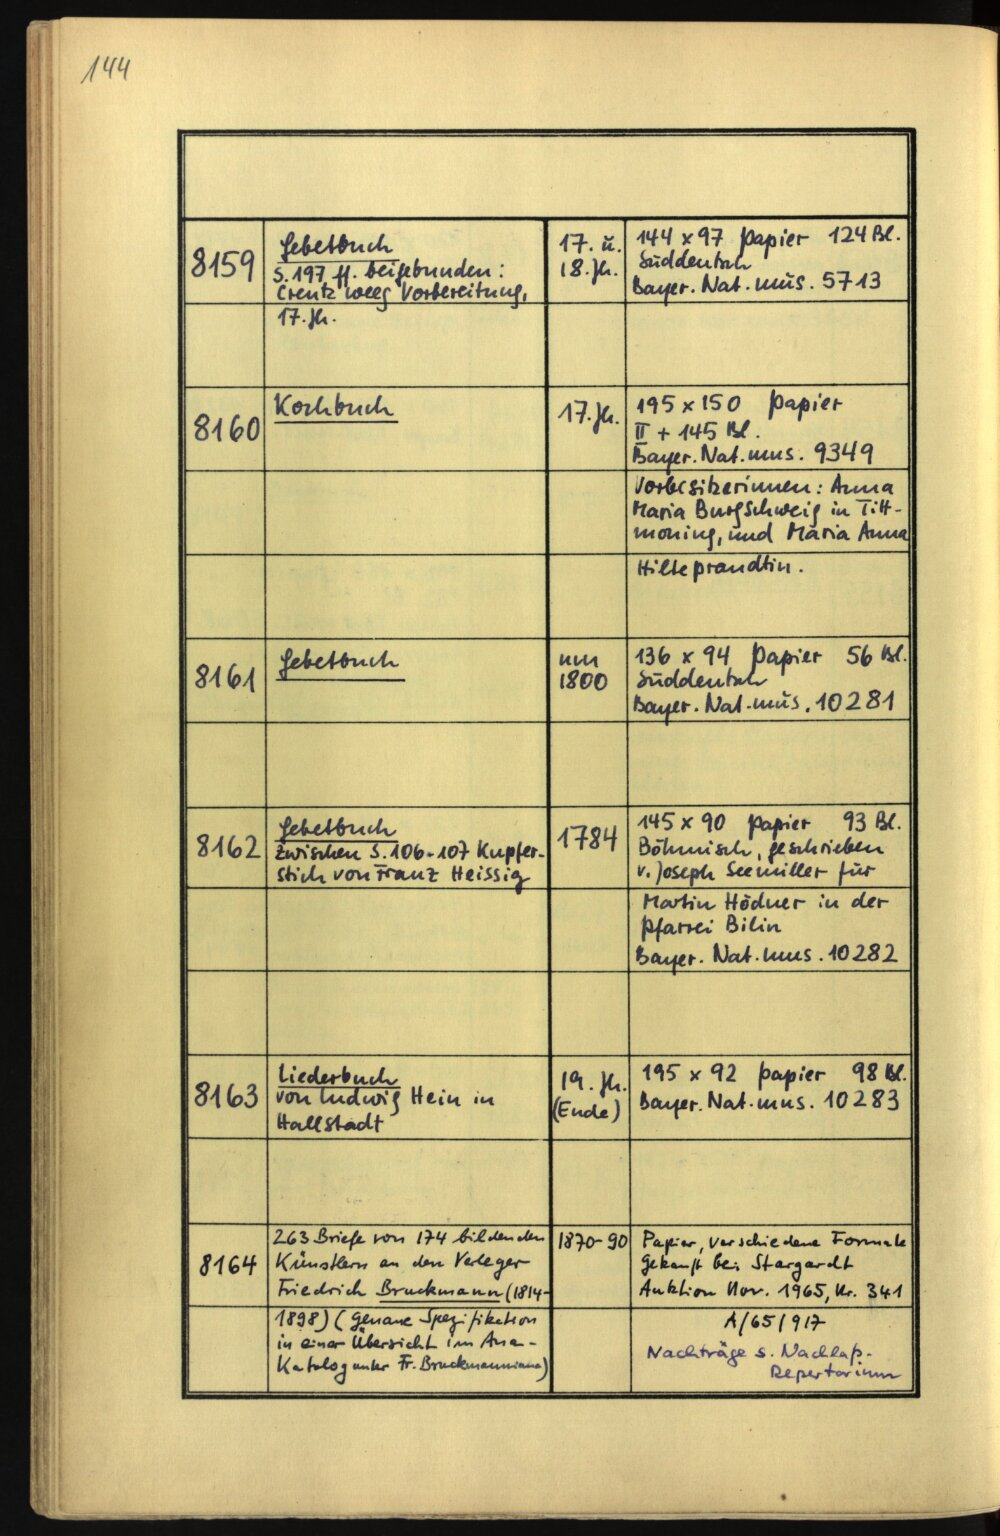 144
8159
Gebetbuch
S. 197 ff. beigebunden:
Creutz weeg Vorbereitung,
17. Jh.
17. u.
18. Jh.
144 x 97 Papier 124 Bl.
Süddeutsch
Bayer. Nat. mus. 5713
8160
Kochbuch
17. Jh.
195 x 150 Papier
II + 145 Bl.
Bayer. Nat. mus. 9349
Vorbesitzerinnen: Anna
Maria Burgschweig in Titt-
moning, und Maria Anna
Hilteprandtin.
8161
Gebetbuch
um
1800
136 x 94 Papier 56 Bl.
Süddeutsch
Bayer. Nat. mus. 10281
8162
Gebetbuch
Zwischen S. 106-107 Kupfer-
stich von Franz Heissig
1784
145 x 90 Papier 93 Bl.
Böhmisch, geschrieben
v. Joseph Seemiller für
Martin Hödner in der
Pfarrei Bilin
Bayer. Nat. mus. 10282
8163
Liederbuch
von Ludwig Hein in
Hallstadt
19. Jh.
(Ende)
195 x 92 Papier 98 Bl.
Bayer. Nat. mus. 10283
8164
263 Briefe von 174 bildenden
Künstlern an den Verleger
Friedrich Bruckmann (1814-
1898) (genaue Spezifikation
in einer Übersicht im Ana-
Katalog unter Fr. Bruckmanniana)
1870-90
Papier, verschiedene Formate
Gekauft bei Stargardt
Auktion Nov. 1965, Nr. 341
A/65/917
Nachträge s. Nachlaß-
Repertorium